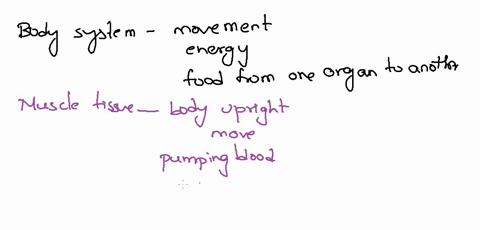 Body system - movement
energy
food from one organ to another
Muscle tissue - body upright
move
pumping blood